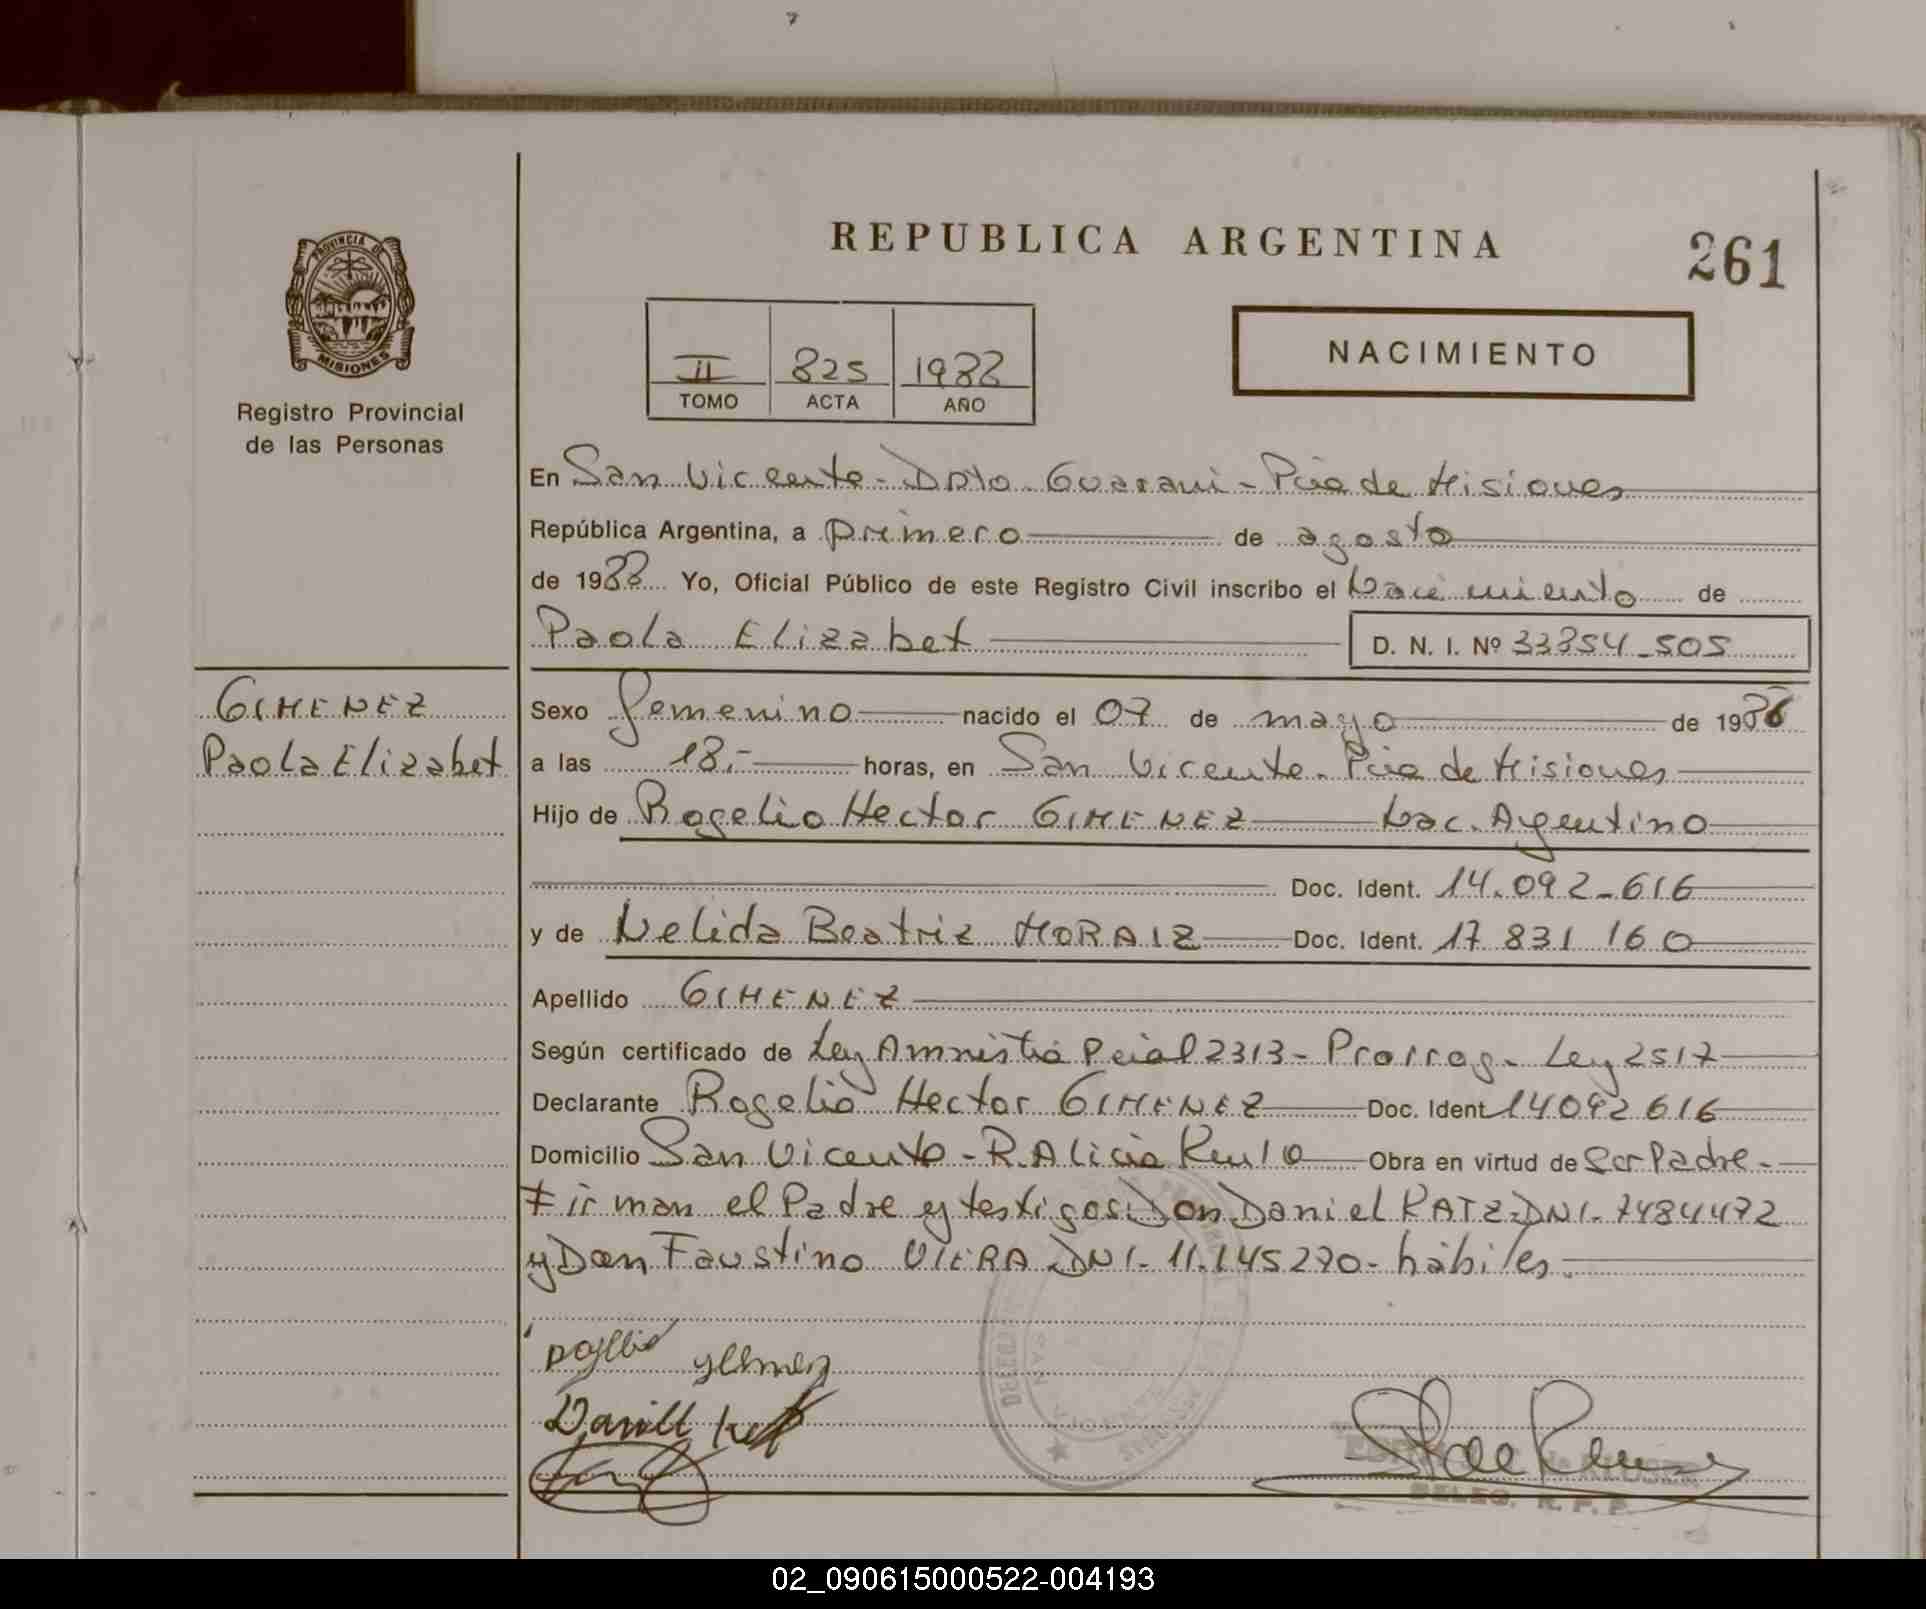 REPUBLICA ARGENTINA
261
PROVINCIA DE
MISIONES
Registro Provincial
de las Personas
II 825 1988
TOMO ACTA AÑO
NACIMIENTO
En San Vicente - Dpto. Guarani - Pcia de Misiones
República Argentina, a primero de agosto
de 1988 Yo, Oficial Público de este Registro Civil inscribo el Nacimiento de
Paola Elizabet D. N. I. Nº 33354-505
GIMENEZ
Paola Elizabet
Sexo femenino nacido el 07 de mayo de 1986
a las 18.- horas, en San Vicente. Pcia de Misiones
Hijo de Rogelio Hector GIMENEZ Nac. Argentino
Doc. Ident. 14.092-616
y de Nelida Beatriz MORAIZ Doc. Ident. 17 831 160
Apellido GIMENEZ
Según certificado de Ley Amnistia Pcial 2313 - Prorrog. Ley 2517
Declarante Rogelio Hector GIMENEZ Doc. Ident 14092616
Domicilio San Vicente - R. Alicia Obra en virtud de Ser Padre -
Firman el Padre y testigos: Don Daniel KATZ DNI- 7484472
y Don Faustino VIERA DNI- 11.145270- hábiles.
DELEG. R. P. P.
02_090615000522-004193